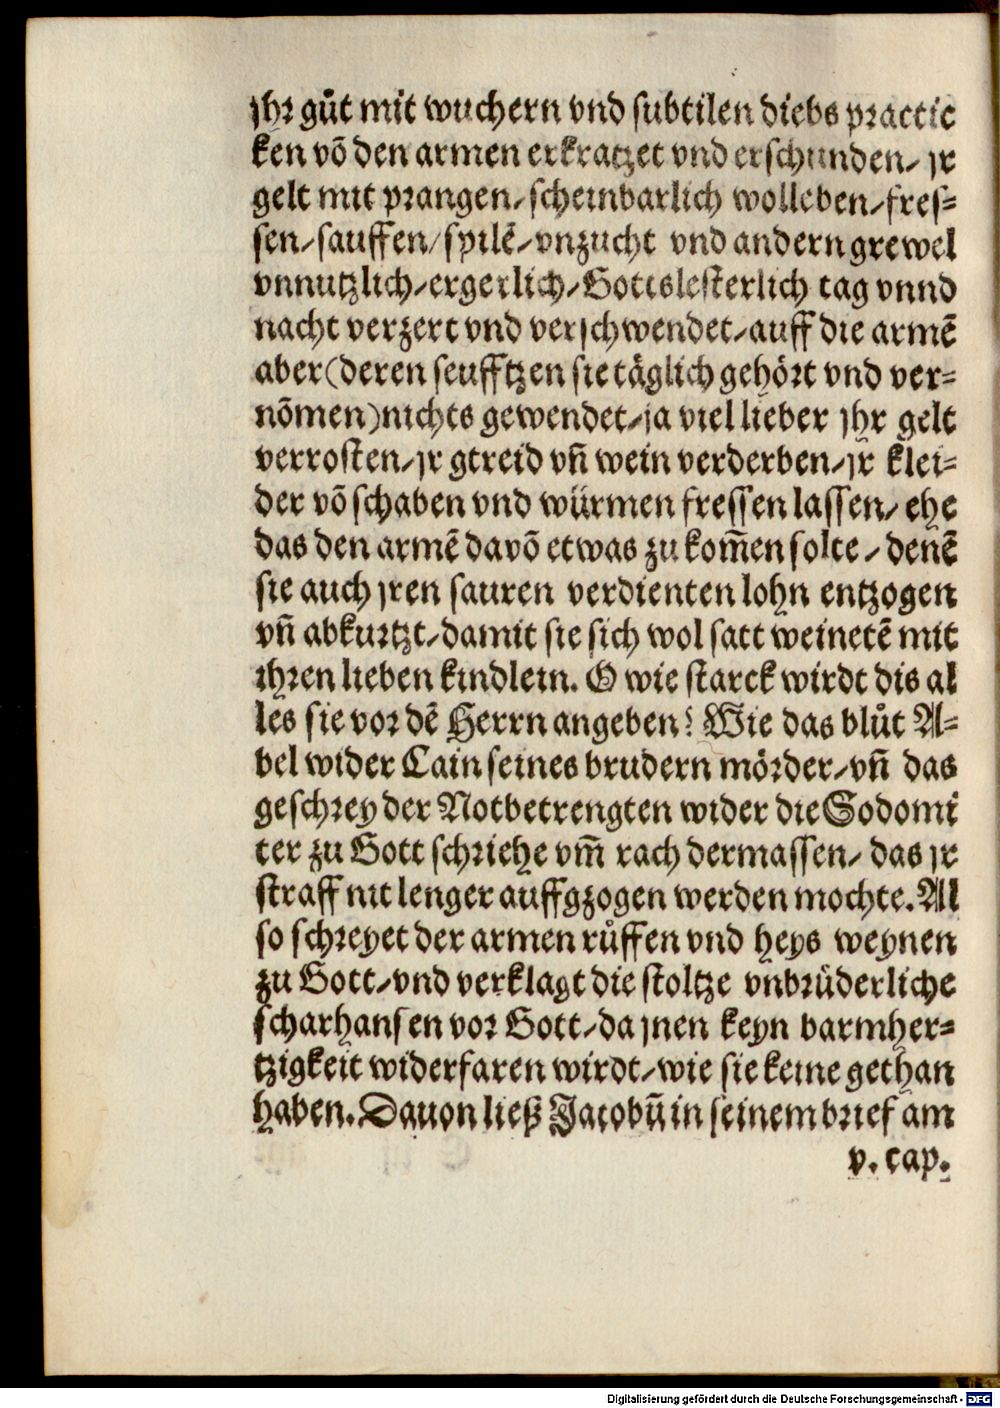 jhr gůt mit wuchern vnd subtilen diebs practic
ken võ den armen erkratzet vnd erschunden/ jr
gelt mit prangen/ scheinbarlich wolleben/ fres-
sen/ sauffen/ spilẽ/ vnzucht vnd andern grewel
vnnutzlich/ ergerlich/ Gottslesterlich tag vnnd
nacht verzert vnd verschwendet/ auff die armẽ
aber (deren seufftzen sie täglich gehört vnd ver-
nõmen) nichts gewendet/ ja viel lieber jhr gelt
verrosten/ jr gtreid vñ wein verderben/ jr klei-
der võ schaben vnd würmen fressen lassen/ ehe
das den armẽ davõ etwas zu kom̃en solte/ denẽ
sie auch jren sauren verdienten lohn entzogen
vñ abkurtzt/ damit sie sich wol satt weinetẽ mit
jhren lieben kindlein. O wie starck wirdt dis al
les sie vor dẽ Herrn angeben? Wie das blůt A-
bel wider Cain seines brudern mörder/ vñ das
geschrey der Notbetrengten wider die Sodomi
ter zu Gott schriehe vm̃ rach dermassen/ das jr
straff nit lenger auffgzogen werden mochte. Al
so schreyet der armen růffen vnd heys weynen
zu Gott/ vnd verklagt die stoltze vnbrüderliche
scharhansen vor Gott/ da jnen keyn barmher-
tzigkeit widerfaren wirdt/ wie sie keine gethan
haben. Dauon ließ Jacobũ in seinem brief am
v. cap.
Digitalisierung gefördert durch die Deutsche Forschungsgemeinschaft - DFG